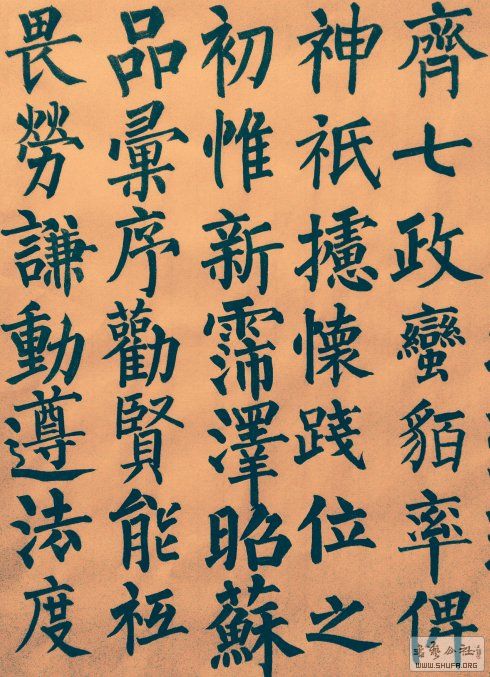 齊七政蠻貊率俾
神祇攄懷踐位之
初惟新霈澤昭蘇
品彙序勸賢能祗
畏勞謙動遵法度
WWW.SHUFA.ORG